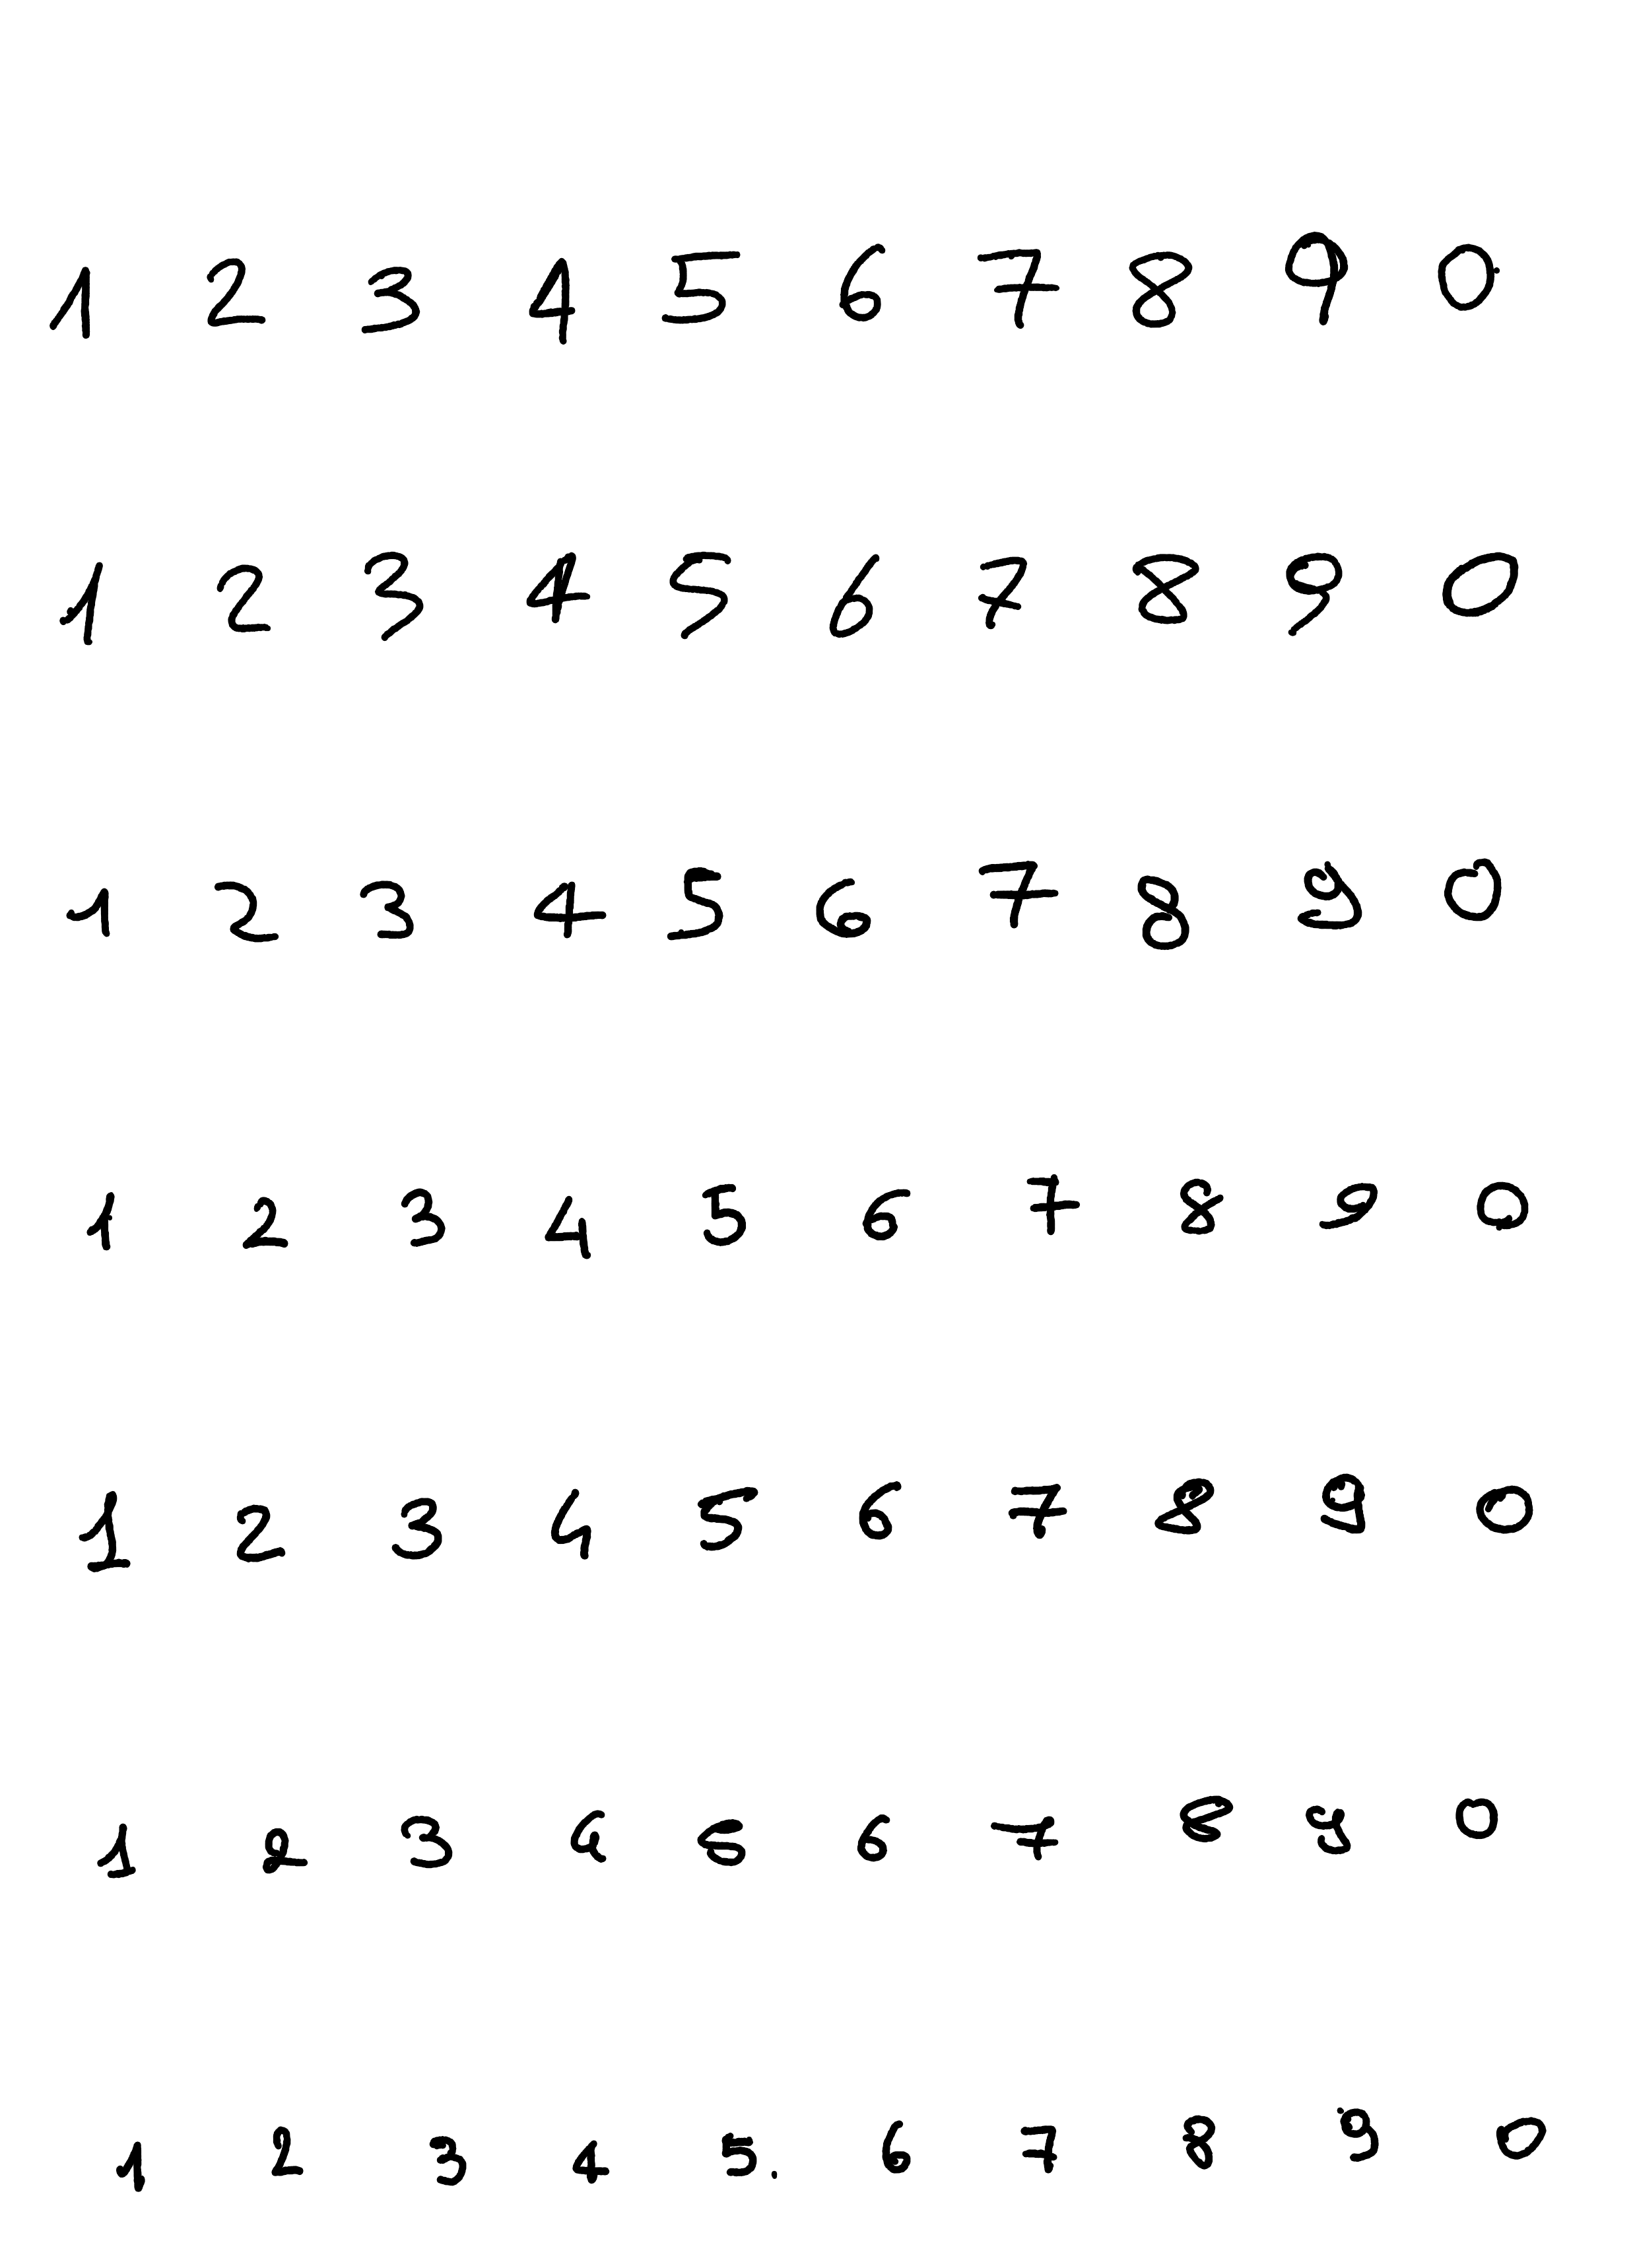 1 2 3 4 5 6 7 8 9 0
1 2 3 4 5 6 7 8 9 0
1 2 3 4 5 6 7 8 9 0
1 2 3 4 5 6 7 8 9 0
1 2 3 4 5 6 7 8 9 0
1 2 3 4 5 6 7 8 9 0
1 2 3 4 5. 6 7 8 9 0